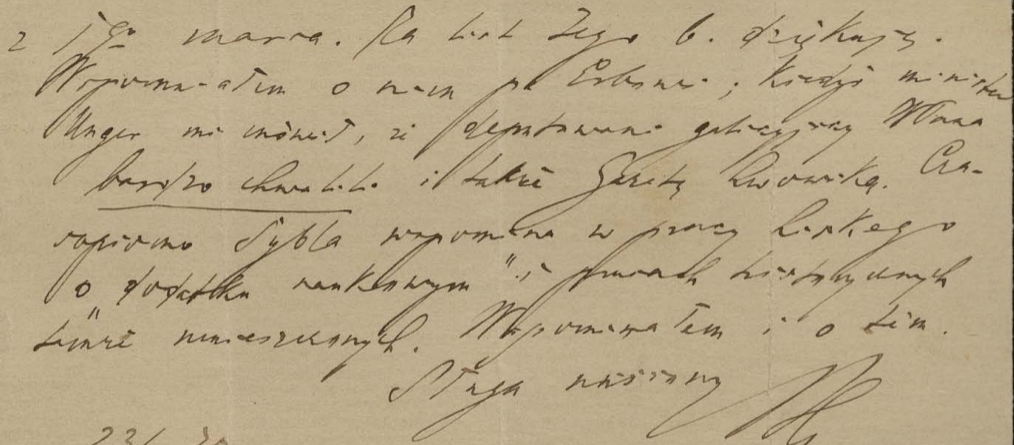 z 1go marca. Za list Jego b. dziękuję.
Wspominałem o nim pr ; kiedyś minister
Unger mi mówił, iż deputowani galicyjscy Pana
bardzo chwalili i także Gazetę Lwowską. Cza-
sopismo Sybla wspomina w pracy Liskego
o „dodatku naukowym" i pracach historycznych
tamże umieszczonych. Wspominałem i o tem.
Sługa uniżony